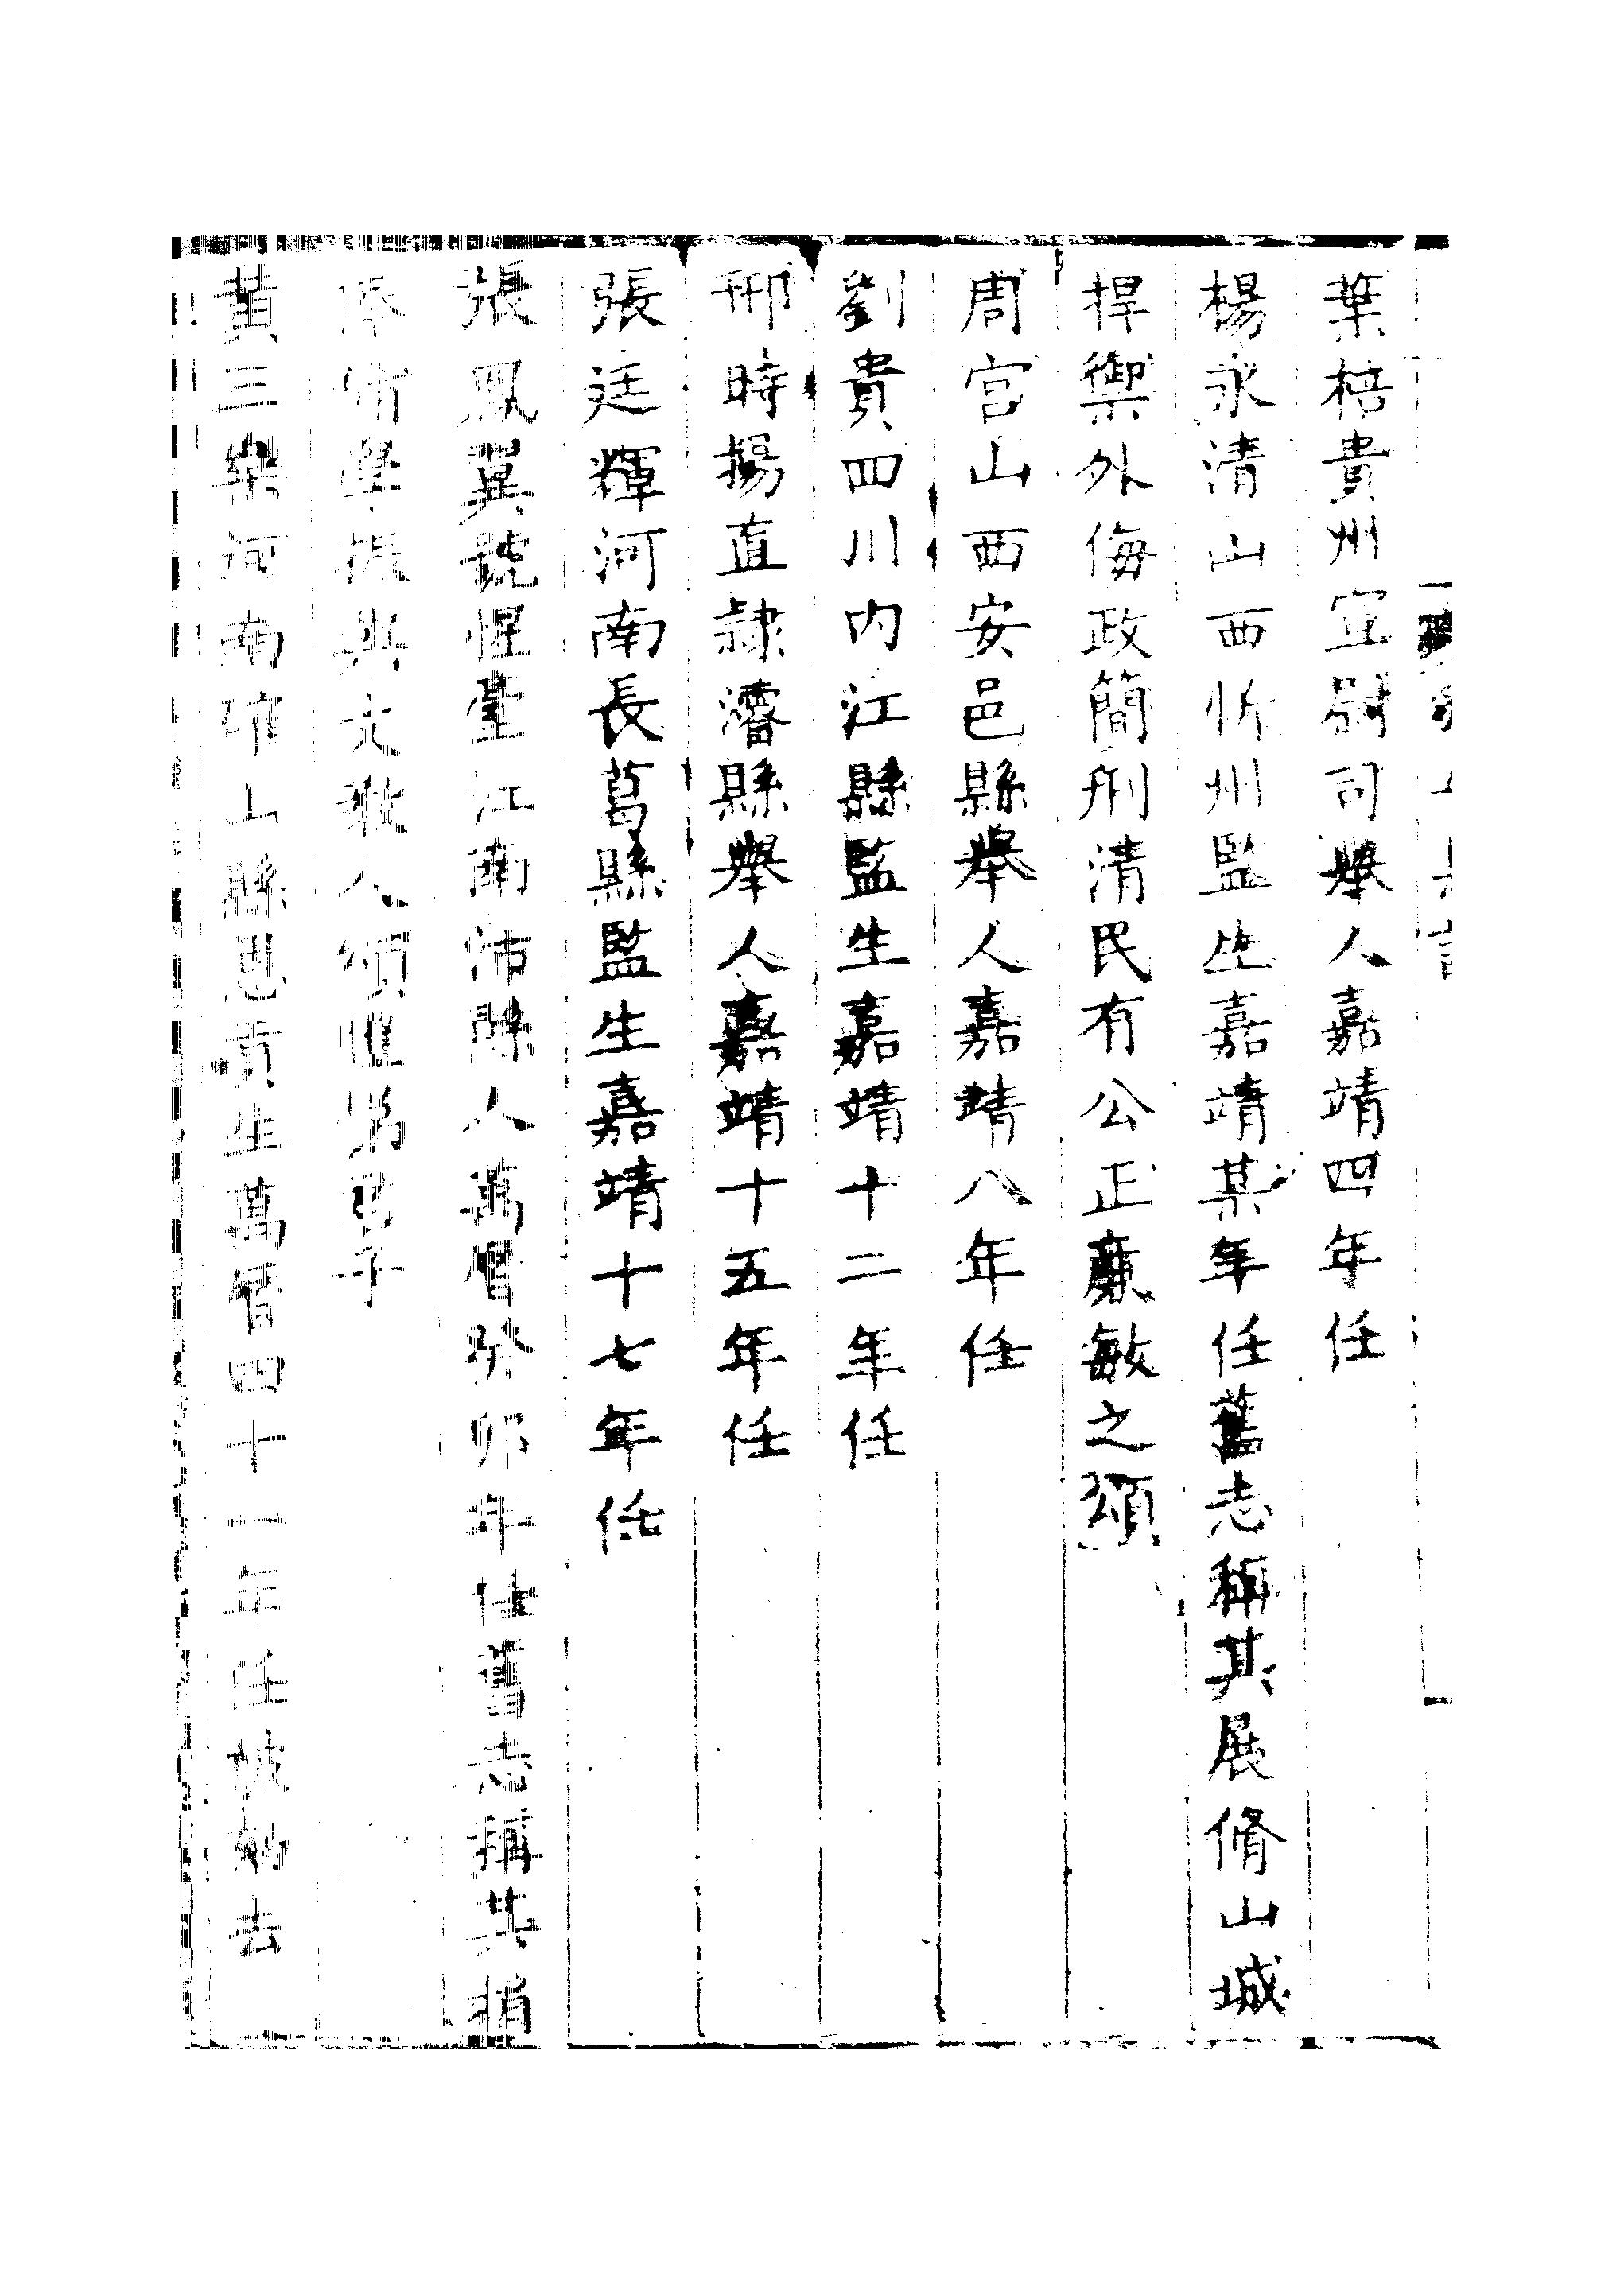 葉梧貴州宣尉司舉人嘉靖四年任
楊永清山西忻州監生嘉靖某年任舊志稱其展脩山城
捍禦外侮政簡刑清民有公正廉敏之頌
周宫山西安邑縣舉人嘉靖八年任
劉貴四川内江縣監生嘉靖十二年任
邢時揚直隷濬縣舉人嘉靖十五年任
張廷輝河南長葛縣監生嘉靖十七年任
張鳳翼號惺臺江南沛縣人萬曆癸卯年任舊志稱其捐
俸脩學振興文教人頌愷弟君子
黃三樂河南確山縣恩貢生萬曆四十一年任被劾去